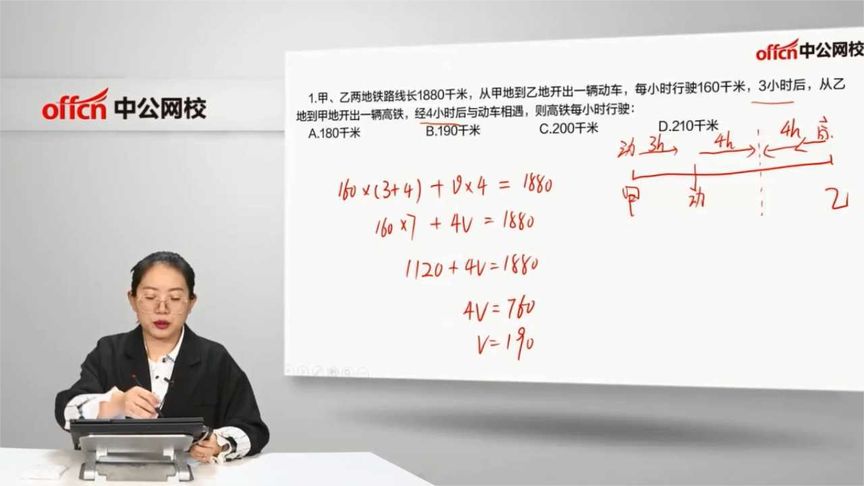 offcn中公网校
offcn中公网校
1.甲、乙两地铁路线长1880千米，从甲地到乙地开出一辆动车，每小时行驶160千米，3小时后，从乙
地到甲地开出一辆高铁，经4小时后与动车相遇，则高铁每小时行驶：
A.180千米 B.190千米 C.200千米 D.210千米
动 3h 4h 4h 高
甲 动 乙
160×(3+4)+v×4=1880
160×7+4v=1880
1120+4v=1880
4v=760
v=190